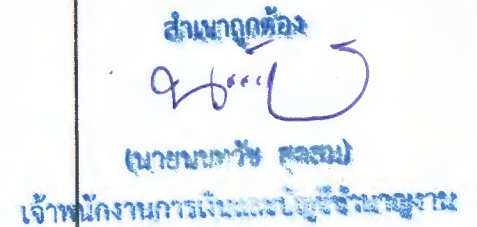 สำเนาถูกต้อง
(นาย
เจ้าพนักงานการเงินและบัญชีชำนาญงาน